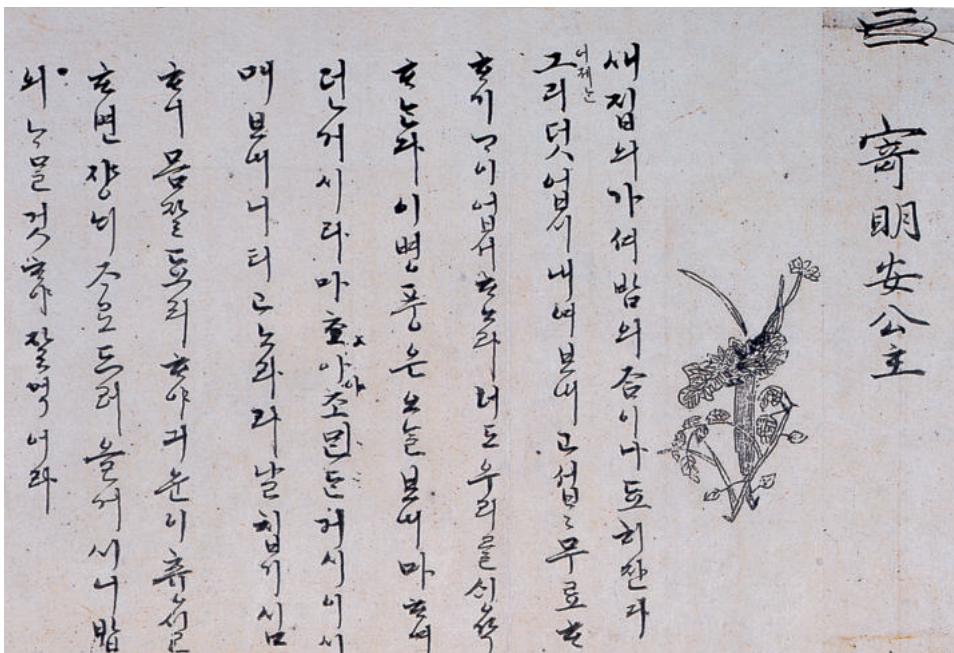 寄明安公主
새집의 가셔 밤의 ᄌᆞᆷ이나 됴히 잔다
어제ᄂᆞᆫ 그리 덧업시 내여 보내고 섭〻 무료
ᄒᆞ기 ᄀᆞ이업서 ᄒᆞ노라 너도 우리ᄅᆞᆯ ᄉᆡᆼ각
ᄒᆞᄂᆞᆫ다 이 병풍은 오ᄂᆞᆯ 보내마 ᄒᆞ여
던 거시라 마초아 거시 이시
매 보내니 티고 노라라 날 칩기 심
ᄒᆞ니 몸 잘 됴리ᄒᆞ야 긔운이 츙실
ᄒᆞ면 쟝ᄂᆡ ᄌᆞ로 드러올 거시니 밥
의 ᄂᆞ믈것 ᄒᆞ야 잘 먹어라